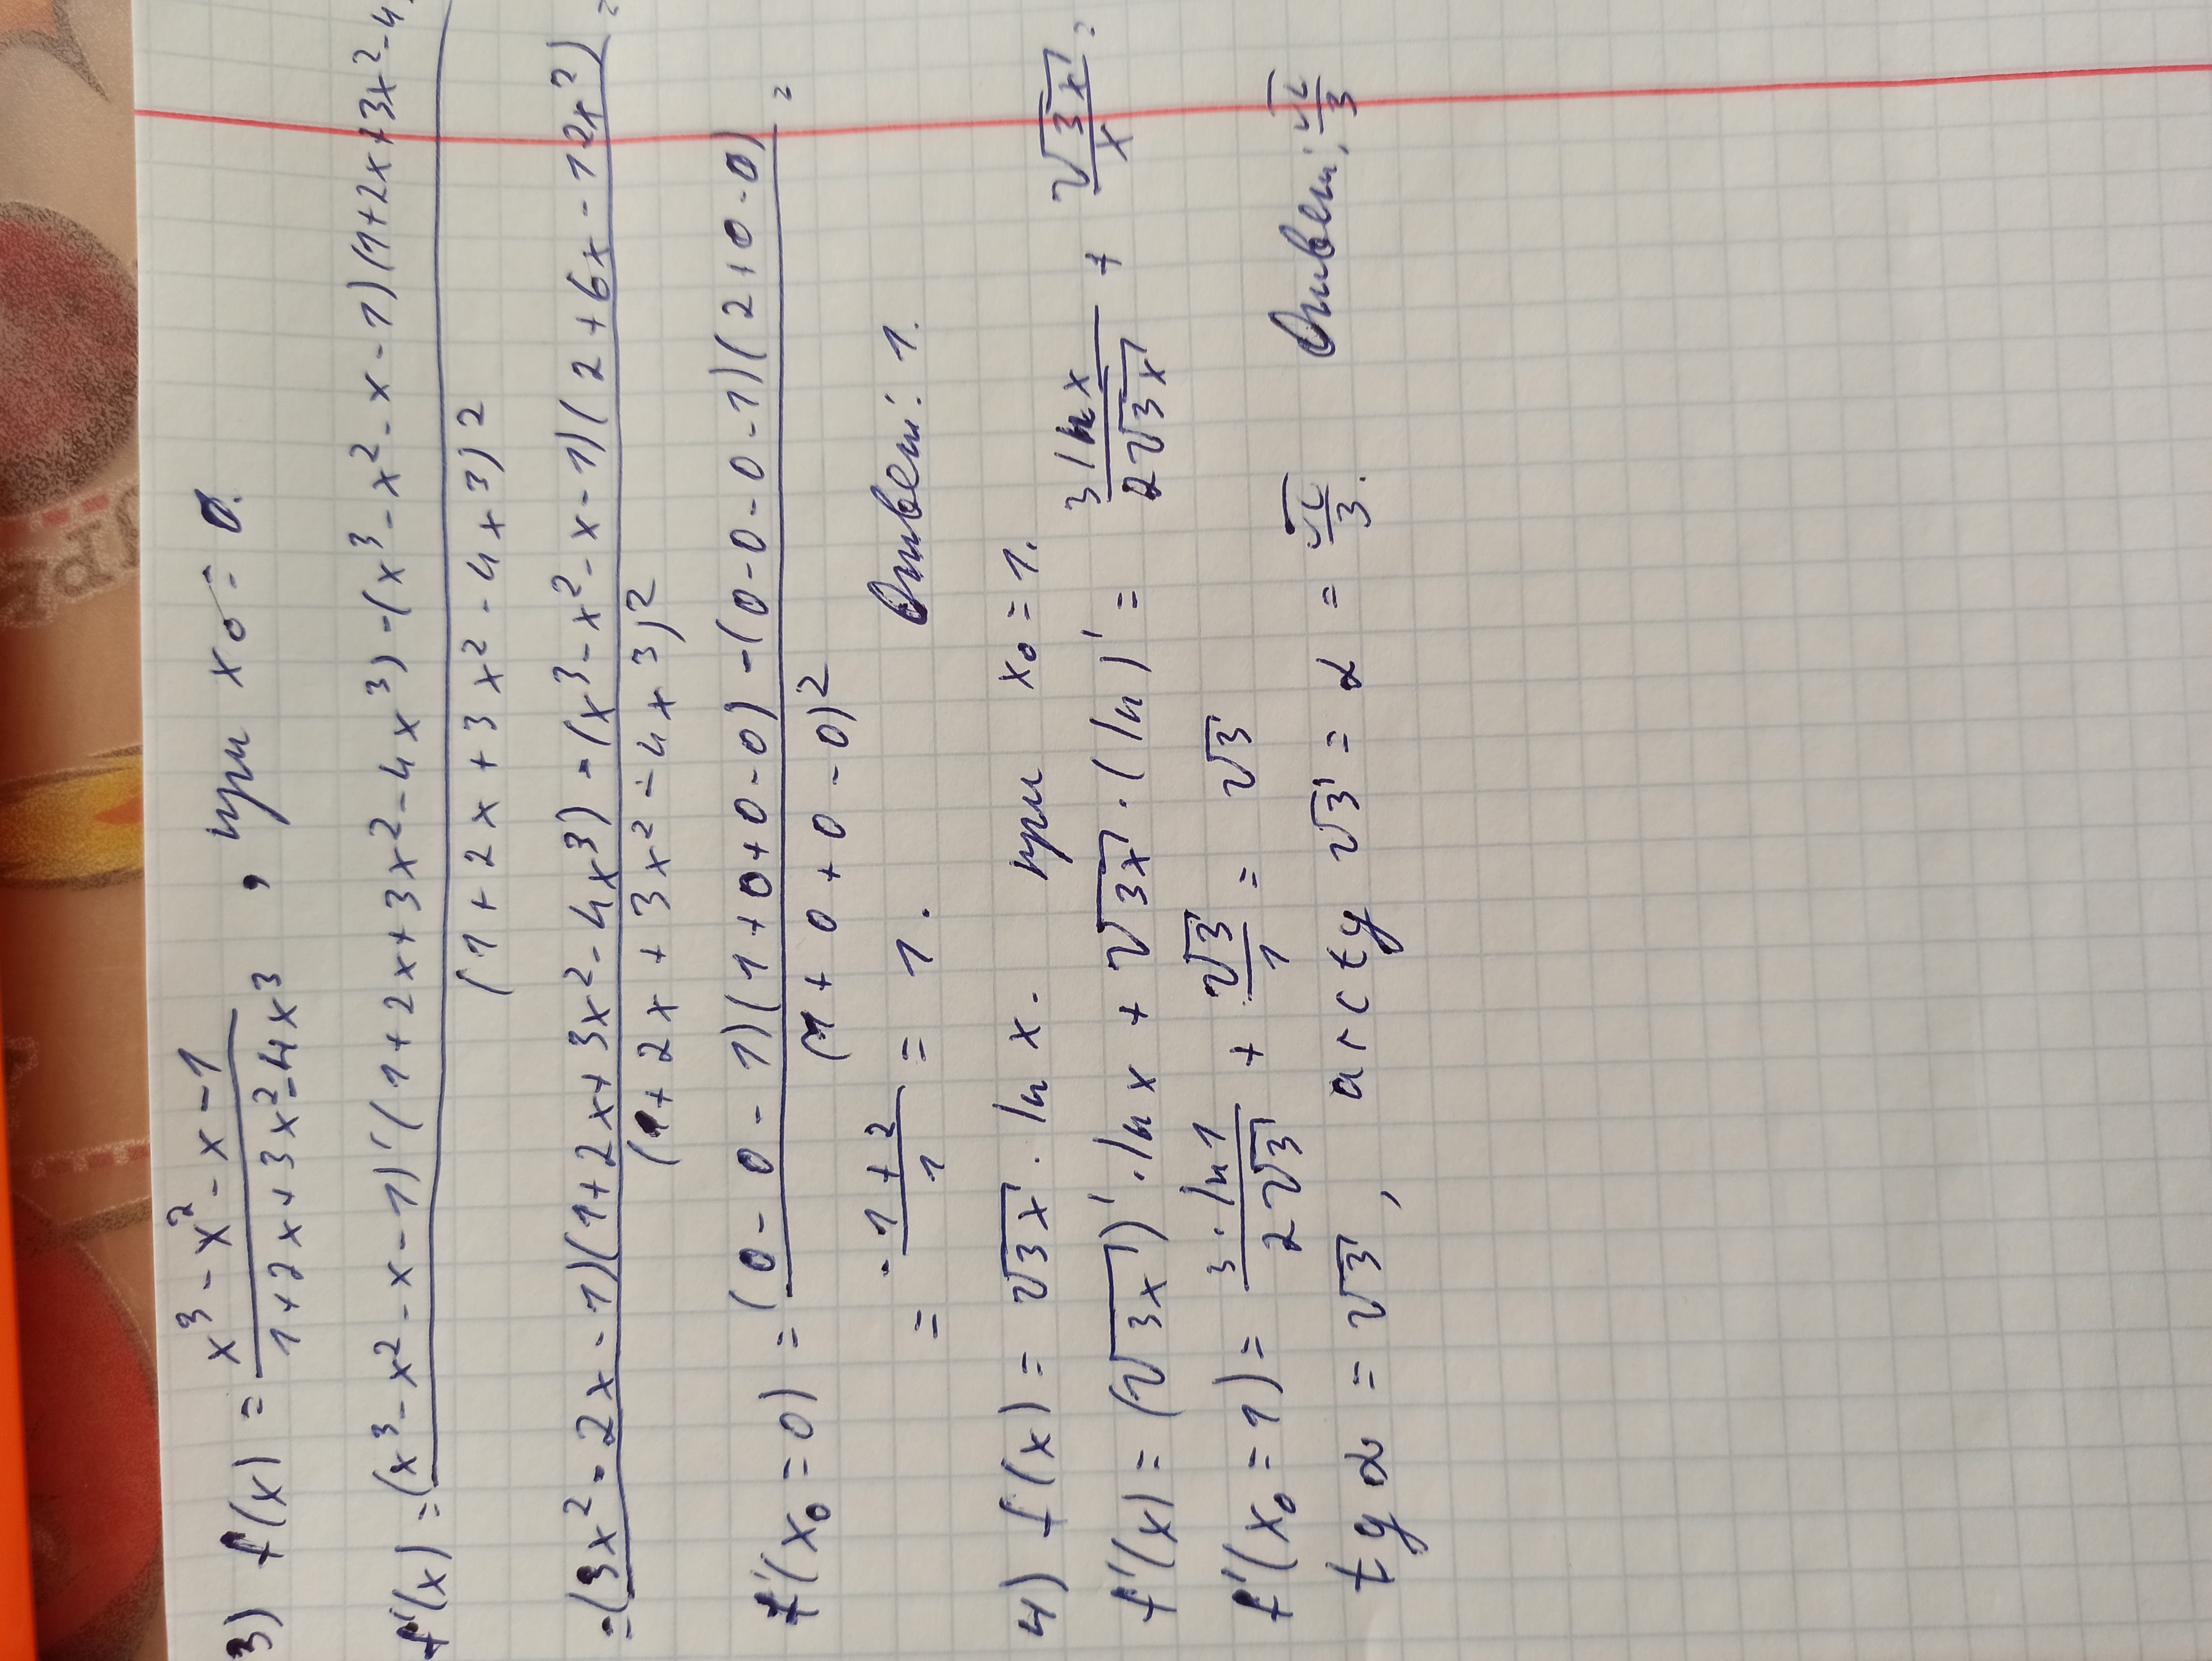 3) f(x) = (x³ - x² - x - 1)/(1 + 2x + 3x² - 4x³) , при x₀ = 0.
f'(x) = ((x³ - x² - x - 1)'(1 + 2x + 3x² - 4x³) - (x³ - x² - x - 1)(1 + 2x + 3x² - 4)/((1 + 2x + 3x² - 4x³)²)
= ((3x² - 2x - 1)(1 + 2x + 3x² - 4x³) - (x³ - x² - x - 1)(2 + 6x - 12x²))/((1 + 2x + 3x² - 4x³)²) =
f'(x₀ = 0) = ((0 - 0 - 1)(1 + 0 + 0 - 0) - (0 - 0 - 0 - 1)(2 + 0 - 0))/((1 + 0 + 0 - 0)²) =
= (-1 + 2)/1 = 1. Ответ: 1.
4) f(x) = √(3x) · ln x. при x₀ = 1.
f'(x) = (√(3x))' · ln x + √(3x) · (ln)' = (3 ln x)/(2√(3x)) + √(3x)/x =
f'(x₀ = 1) = (3 · ln 1)/(2√3) + √3/1 = √3
tg α = √3, arctg √3 = α = π/3. Ответ: π/3